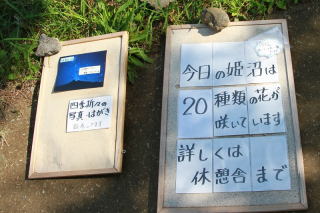 四季折々の
写真はがき
今日の姫沼は
20種類の花が
咲いています
詳しくは
休憩舎まで